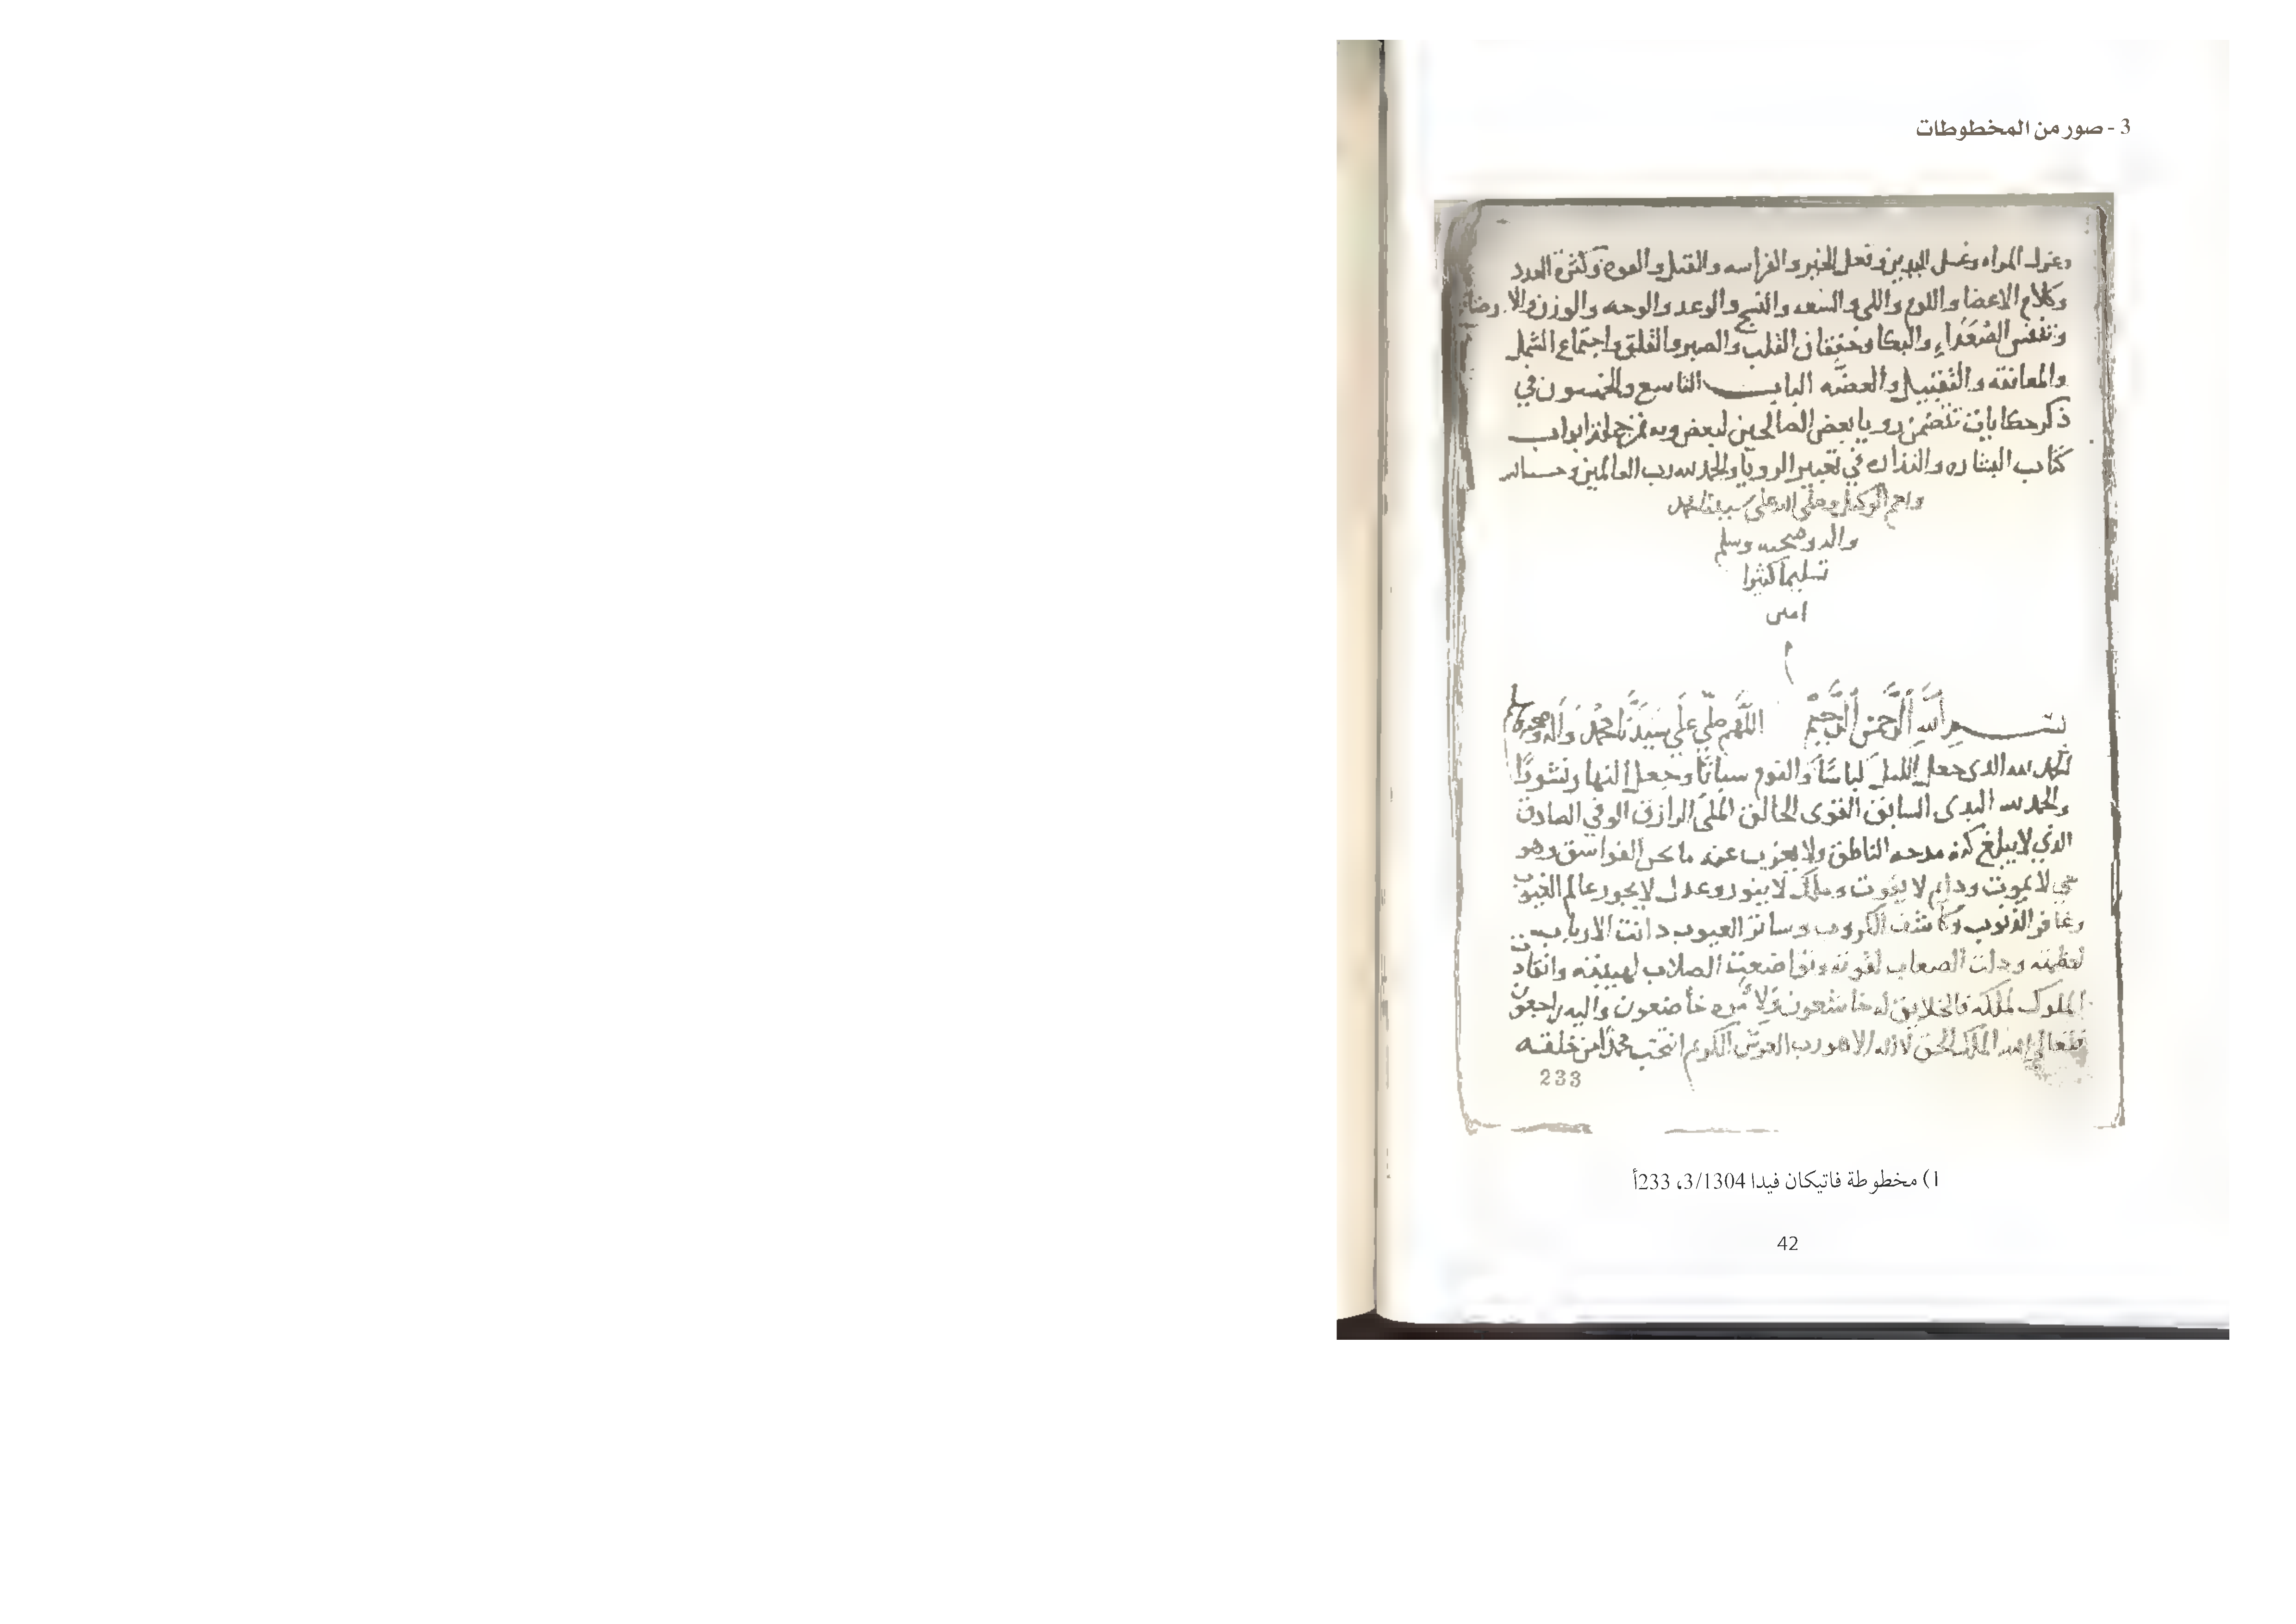 3 - صور من المخطوطات
وغزل المراه وغسل اليدين وفعل الخير والفراسه والقتل والقوه وكثرة العدد
وكلام الاعضا واللوم واللي والنسج والوعد والوحه والوزن والا رضاع
وتنفس الصُّعَدَاءِ والبكا وخفقان القلب والصبر والقلق واجتماع الشمل
والمعانقه والتقبيل والعضّه الباب التاسع والخمسون في
ذكر حكايات تتضمن رويا بعض الصالحين لبعض وبه تمر جملة ابواب
كتاب البشاره والنذاره في تعبير الرويا والحمد لله رب العالمين وحسبنا الله
ونعم الوكيل وصلى الله على سيدنا محمد
واله وصحبه وسلم
تسليما كثيرا
امين
بسم اللَّه الرَّحمن الرَّحيم اللَّهم صلّي على سَيِّدنَا محمد وَاله وصحبه وسلم
الحمد لله الذي جعل الليل لباسًا والنوم سباتًا وجعل النهار نشورًا
والحمد لله البدي السابق القوى الخالق الملى الرازق الوفي الصادق
الذي لا يبلغ كنه مدحه الناطق ولا يعزب عنه ما تجن الغواسق وهو
حي لا يموت ودايم لا يفوت وملك لا يبور وعدل لا يجور عالم الغيوب
وغافر الذنوب وكاشف الكروب وساتر العيوب دانت الارباب
لعظمته وذلت الصعاب لقوته وتواضعت الصلاب لهيبته وانقادت
الملوك لملكه فالخلايق له خاشعون ولأمره خاضعون واليه راجعون
فتعالى الله الملك الحق لا اله الا هو رب العرش الكريم انتخب محمدًا من خلقه
233
1) مخطوطة فاتيكان فيدا 3/1304، 233أ
42